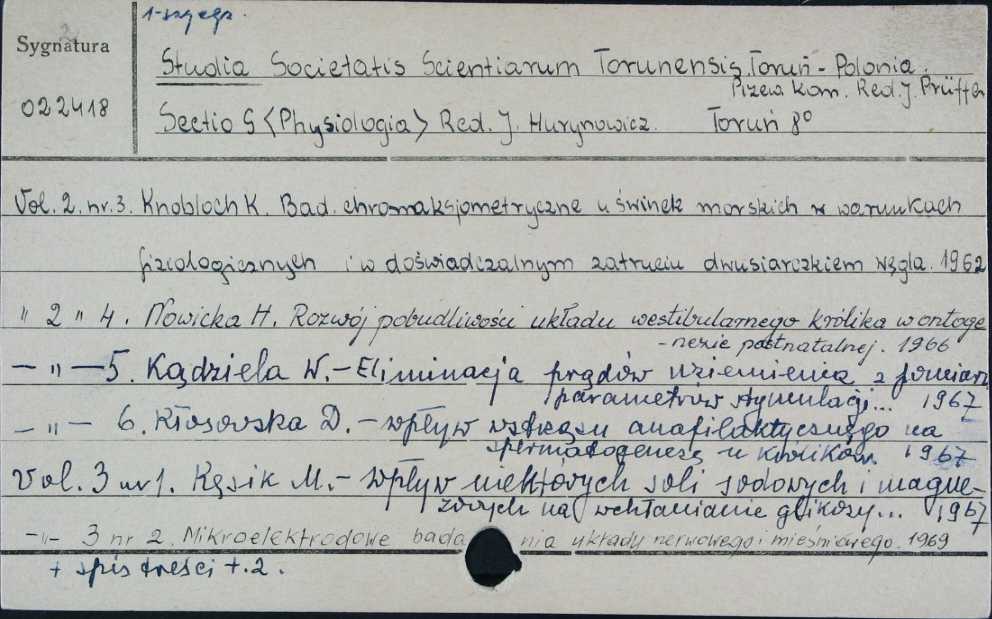 1-szy egz.
Sygnatura
022418
Studia Societatis Scientiarum Torunensis. Toruń - Polonia.
Przew. Kom. Red. J. Prüffer
Sectio G <Physiologia> Red. J. Hurynowicz. Toruń 8°
Vol. 2. nr. 3. Knobloch K. Bad. chronaksjometryczne u świnek morskich w warunkach
fizcologicznych i w doświadczalnym zatruciu dwusiarczkiem węgla. 1962
" 2 " 4. Nowicka H. Rozwój pobudliwości układu westibularnego królika w ontoge
-nezie postnatalnej. 1966
— " — 5. Kądziela W. - Eliminacja prądów uziemienia z pomiaru
parametrów stymulacji... 1967
— " — 6. Kłosowska D. - wpływ wstrząsu anafilaktycznego na
spermatogenezę u królików. 1967
Vol. 3 nr 1. Kęsik M. - wpływ niektórych soli sodowych i magne-
zowych na wchłanianie glikozy... 1967
-"- 3 nr 2. Mikroelektrodowe bada nia układu nerwowego i mięśniowego. 1969
+ spis treści t. 2.